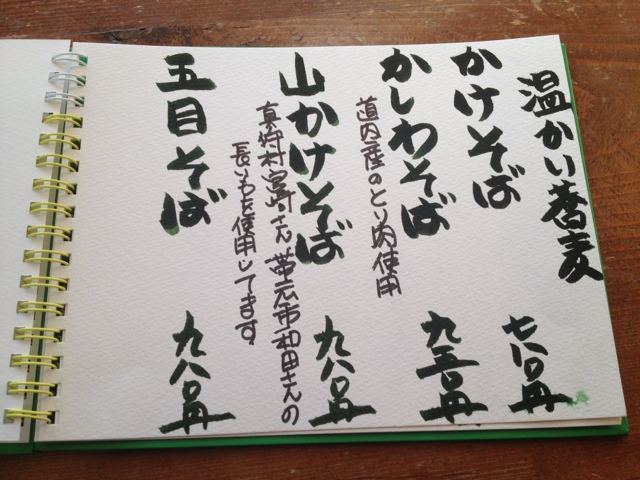 温かい蕎麦
かけそば 七八〇円
かしわそば 九三〇円
道内産のとり肉使用
山かけそば 九八〇円
真狩村宮崎さん帯広市和田さんの
長いもを使用してます
五目そば 九八〇円